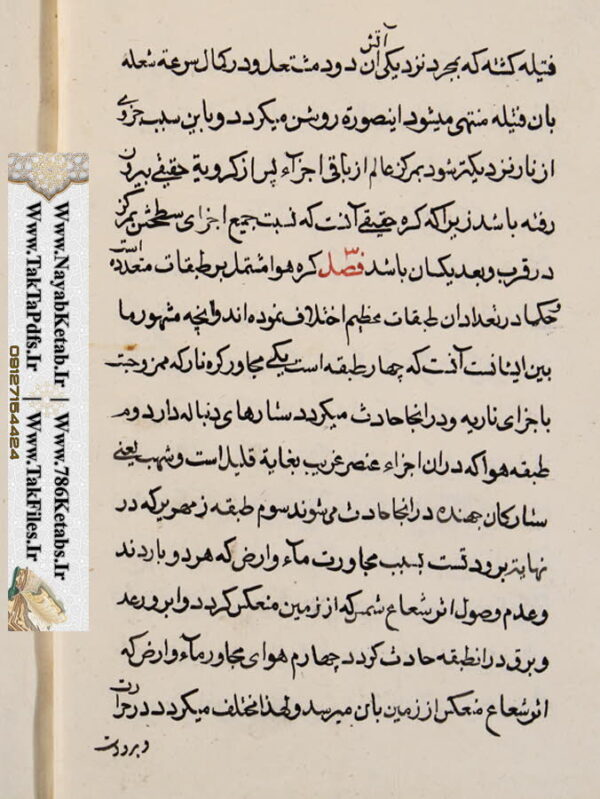 فتیله کشته که بمجرد نزدیکی آتش ان دود مشتعل و در کمال سرعة شعله
بان فتیله منتهی میشود اینصورة روشن میکردد و باین سبب جزوی
از نار نزدیکتر شود بمرکز عالم از باقی اجزآء پس از کرویة حقیقی بیرون
رفته باشد زیرا که کره حقیقی آنست که نسبت جمیع اجزای سطحش بمرکز
در قرب و بعد یکسان باشد فصل ۳ کره هوا مشتمل بر طبقات متعدده است
و حکما در تعداد ان طبقات عظیم اختلاف نموده اند و انچه مشهور ما
بین ایشانست آنست که چهار طبقه است یکی مجاور کره نار که ممزوجست
باجزای ناریه و در انجا حادث میکردد ستارهای دنباله دار دوم
طبقه هوا که در ان اجزاء عنصر غریب بغایة قلیل است و شهب یعنی
ستارکان جهنده در انجا حادث می شوند سوم طبقه زمهریر که در
نهایة برودتست بسبب مجاورت مآء و ارض که هر دو باردند
و عدم وصول اثر شعاع شمس که از زمین منعکس کردد و ابر و رعد
و برق در انطبقه حادث کردد چهارم هوای مجاور مآء و ارض که
اثر شعاع منعکس از زمین بان میرسد و لهذا مختلف میکردد در حرارت
و برودت
www.NayabKetab.Ir | Www.786Ketabs.Ir
Www.TakTaPdfs.Ir | Www.TakFiles.Ir
09127154424